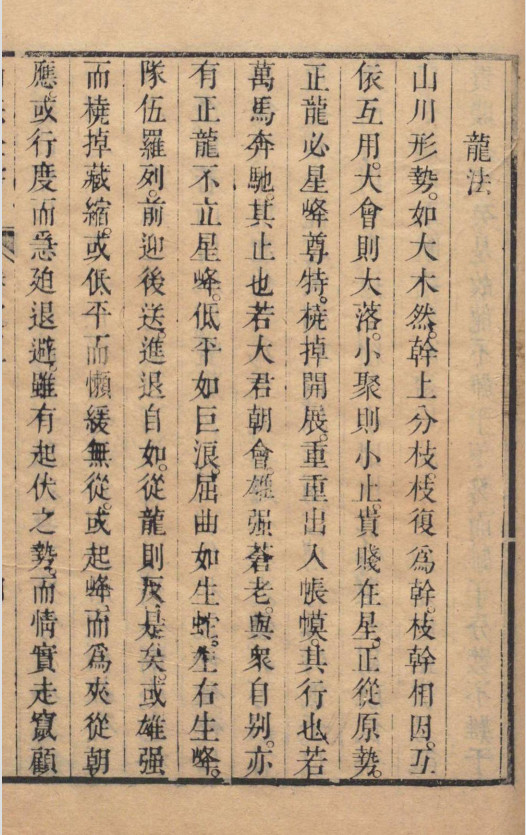 龍法
山川形勢。如大木然。幹上分枝。枝復爲幹。枝幹相因。互
依互用。大會則大落。小聚則小止。貴賤在星。正從原勢。
正龍必星峰尊特。橈掉開展。重重出入帳幙。其行也若
萬馬奔馳。其止也若大君朝會。雄强蒼老。與衆自别。亦
有正龍不立星峰。低平如巨浪。屈曲如生蛇。左右生峰。
隊伍羅列。前迎後送。進退自如。從龍則反是矣。或雄强
而橈掉藏縮。或低平而懶緩無從。或起峰。而爲夾從朝
應。或行度而急廹退避。雖有起伏之勢。而情實走竄顧